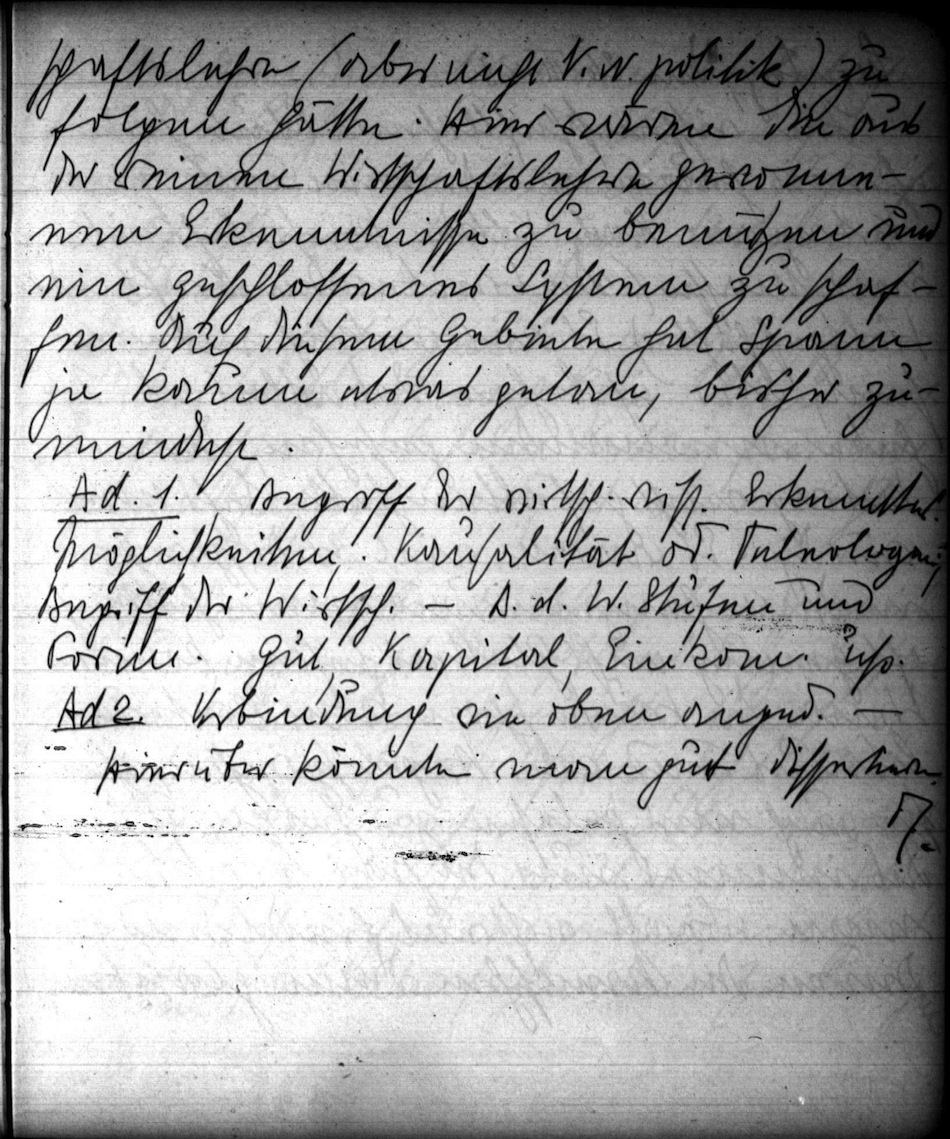 schaftslehre (aber nicht V. w. politik) zu
folgen hätte. Hier wären die aus
der reinen Wirtschaftslehre gewonne-
nen Erkenntnisse zu benützen und
ein geschlossenes System zu schaf-
fen. Auf diesem Gebiete hat Spann
ja kaum etwas getan, bisher zu-
mindest.
Ad. 1. Begriff der wirtsch. wiss. Erkenntnis
möglichkeiten. Kausalität od. Teleologie,
Begriff der Wirtsch. – D. d. W. Stufen und
Form. Gut, Kapital, Einkom. usf.
Ad 2. Verbindung wie oben anged. —
Hierüber könnte man gut dissertieren